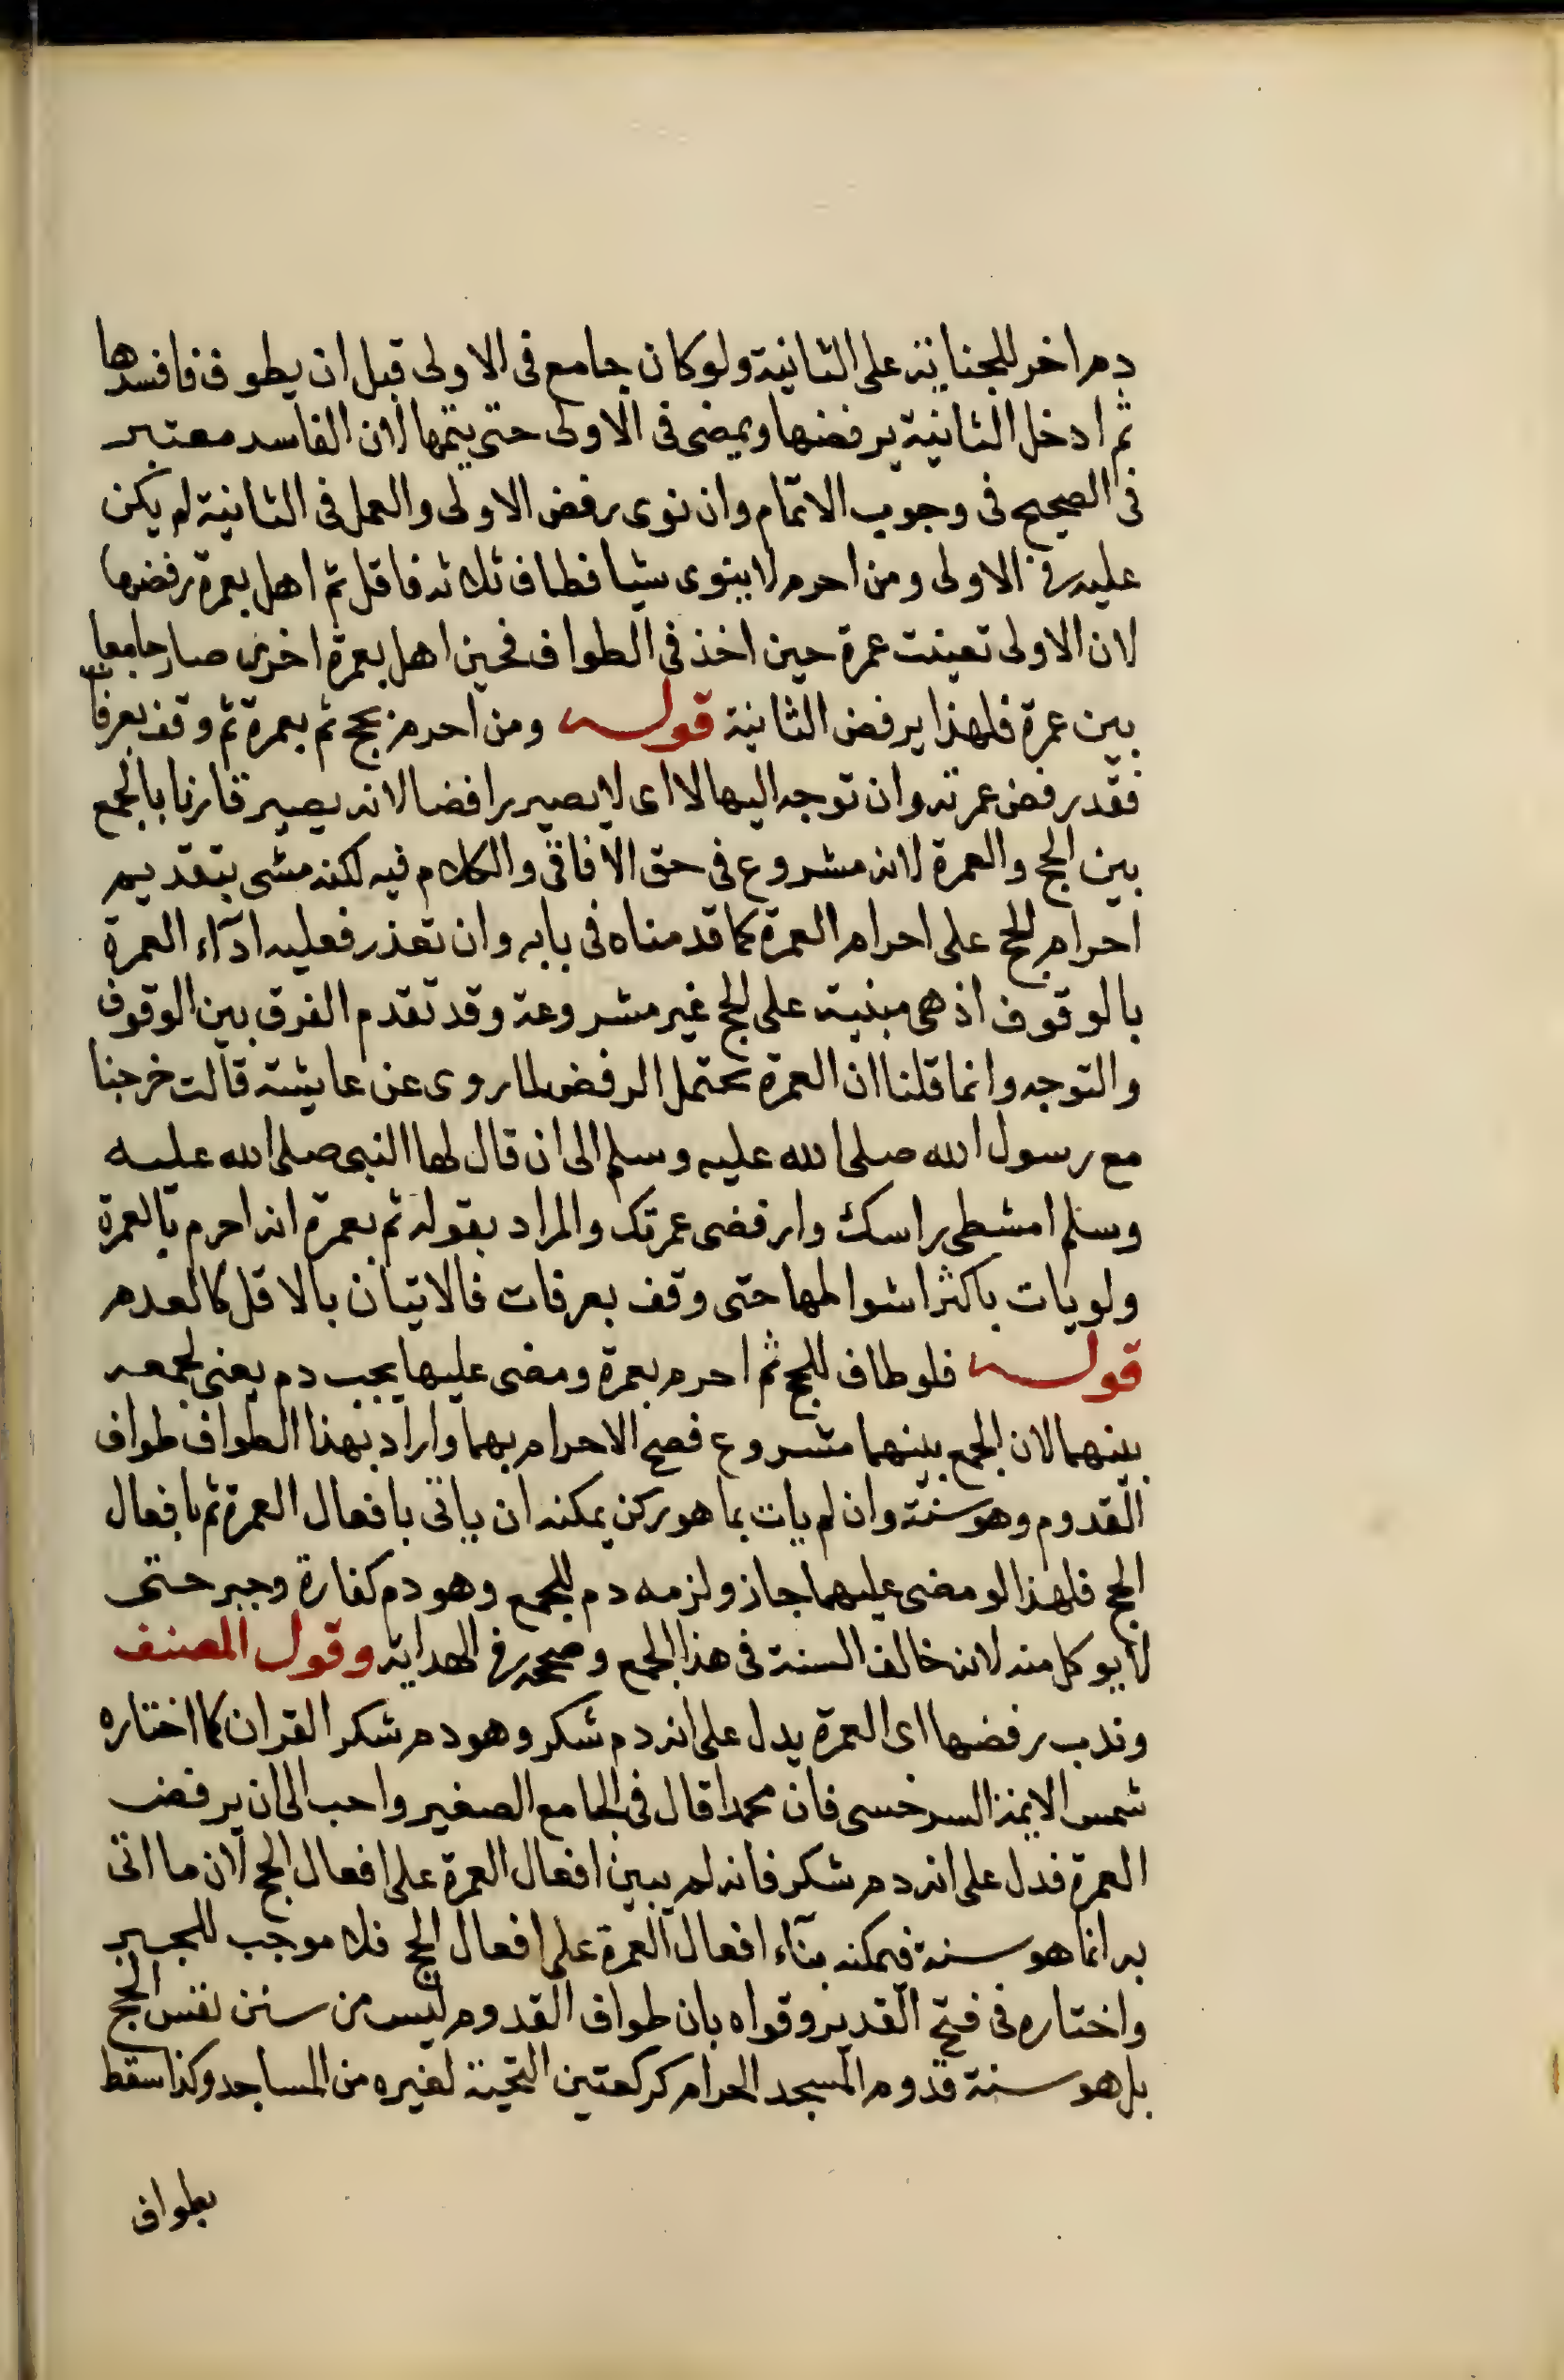 دم اخر للجناية على الثانية ولو كان جامع فى الاولى قبل ان يطوف فافسدها
ثم ادخل الثانية يرفضها ويمضى فى الاولى حتى يتمها لان الفاسد معتبر
فى الصحيح فى وجوب الاتمام وان نوى رفض الاولى والعمل فى الثانية لم يكن
عليه فى الاولى ومن احرم لا ينوى شيا فطاف ثلاثه فاقل ثم اهل بعمرة رفضها
لان الاولى تعينت عمرة حين اخذ فى الطواف فحين اهل بعمرة اخرى صار جامعا
بين عمرة فلهذا يرفض الثانية قوله ومن احرم بحج ثم بعمرة ثم وقف بعرفات
فقد رفض عمرته وان توجه اليها لا اى لا يصير رافضا لانه يصير قارنا بالجمع
بين الحج والعمرة لانه مشروع فى حق الافاقى والكلام فيه لكنه مشى بتقديم
احرام الحج على احرام العمرة كما قدمناه فى بابه وان تعذر فعليه ادآء العمرة
بالوقوف اذ هى مبنية على الحج غير مشروعة وقد تقدم الفرق بين الوقوف
والتوجه وانما قلنا ان العمرة تحتمل الرفض لما روى عن عايشة قالت خرجنا
مع رسول الله صلى الله عليه وسلم الى ان قال لها النبى صلى الله عليه
وسلم امشطى راسك وارفضى عمرتك والمراد بقوله ثم بعمرة انه احرم بالعمرة
ولو يات باكثر اشواطها حتى وقف بعرفات فالاتيان بالاقل كالعدم
قوله فلو طاف للحج ثم احرم بعمرة ومضى عليها يجب دم يعنى لجمعه
بينهما لان الجمع بينهما مشروع فصح الاحرام بهما واراد بهذا الطواف طواف
القدوم وهو سنة وان لم يات بما هو ركن يمكنه ان ياتى بافعال العمرة ثم بافعال
الحج فلهذا لو مضى عليهما جاز ولزمه دم للجمع وهو دم كفارة وجبر حتى
لا يوكل منه لانه خالف السنة فى هذا الجمع وصححه فى الهداية وقول المصنف
وندب رفضها اى العمرة يدل على انه دم شكر وهو دم شكر القران كما اختاره
شمس الايمة السرخسى فان محمدا قال فى الجامع الصغير واحب الى ان يرفض
العمرة فدل على انه دم شكر فانه لم يبين افعال العمرة على افعال الحج لان ما اتى
به انما هو سنة فيمكنه بنآء افعال العمرة على افعال الحج فلا موجب للجبر
واختاره فى فتح القدير وقواه بان طواف القدوم ليس من سنن نفس الحج
بل هو سنة قدوم المسجد الحرام كركعتين التحية لغيره من المساجد وكذا سقط
بطواف